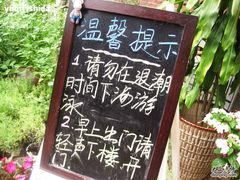 温馨提示
1.请勿在退潮
时间下海游
泳
2.早上出门请
轻声下楼开
门